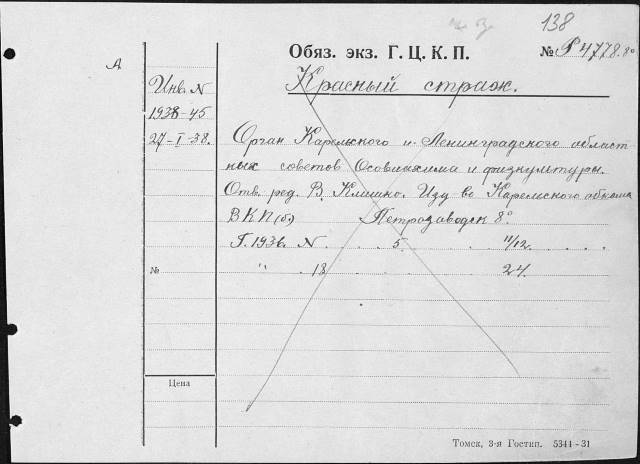 138
Обяз. экз. Г. Ц. К. П.
№ Р 4778.80
А
Красный страж.
Инв. N
1938-45
27-I-38.
Орган Карельского и Ленинградского област-
ных советов Осовиахима и физкультуры.
Отв. ред. В. Климко. Изд во Карельского обкома
ВКП(б) Петрозаводск 8º
Г. 1936. N . . . 5. . . . 11/12. . . . .
№
" . 18 24.
Цена
Томск, 3-я Гостип. 5341-31